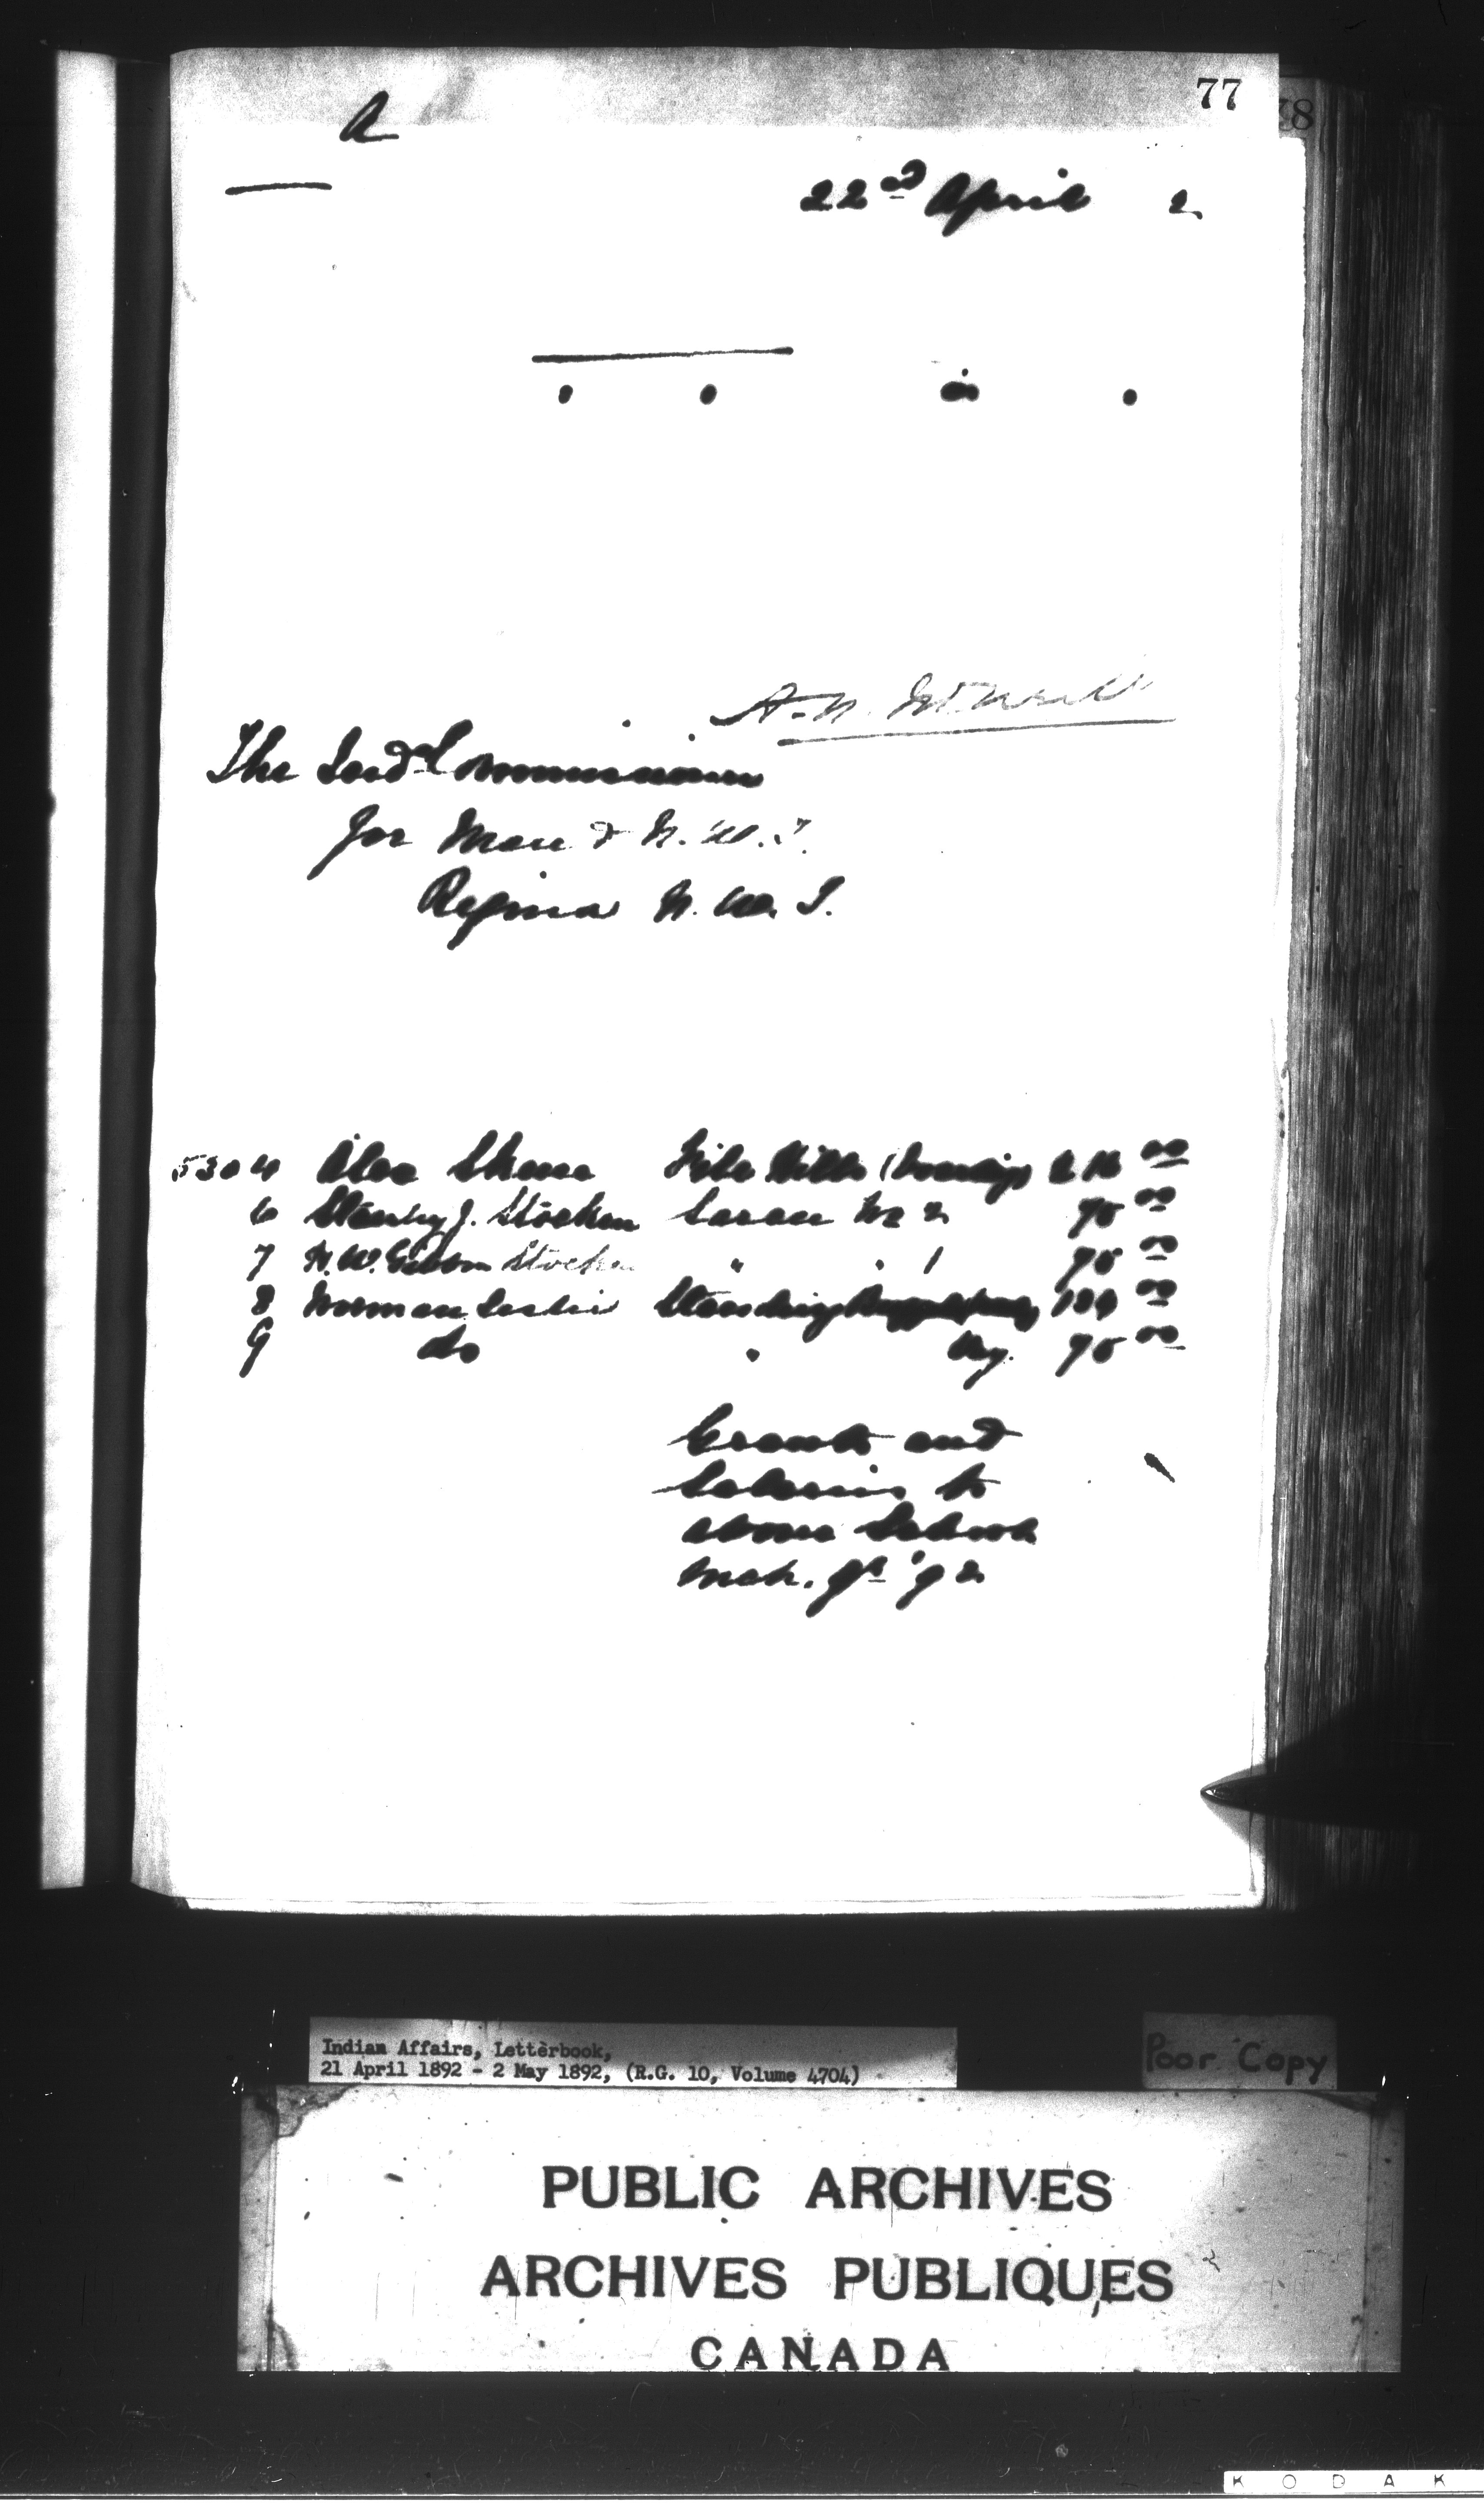 77
78
A
22nd April 2
A. N. McNeill
The Ind Commissioner
for Man & N. W. T.
Regina N. W. T.
5304 Alex Skene File Hills (Boarding) 00
6 Stanley J. Stocken Sarcee No 2 75 00
7 H. W. Gibbon Stocken " " 1 75 00
8 Norman Leslie Standing 00
9 do " 75 00
Grants and
Salaries to
above Schools
Mch. qr '92
Indian Affairs, Letterbook,
21 April 1892 - 2 May 1892, (R.G. 10, Volume 4704)
Poor Copy
PUBLIC ARCHIVES
ARCHIVES PUBLIQUES
CANADA
KODAK